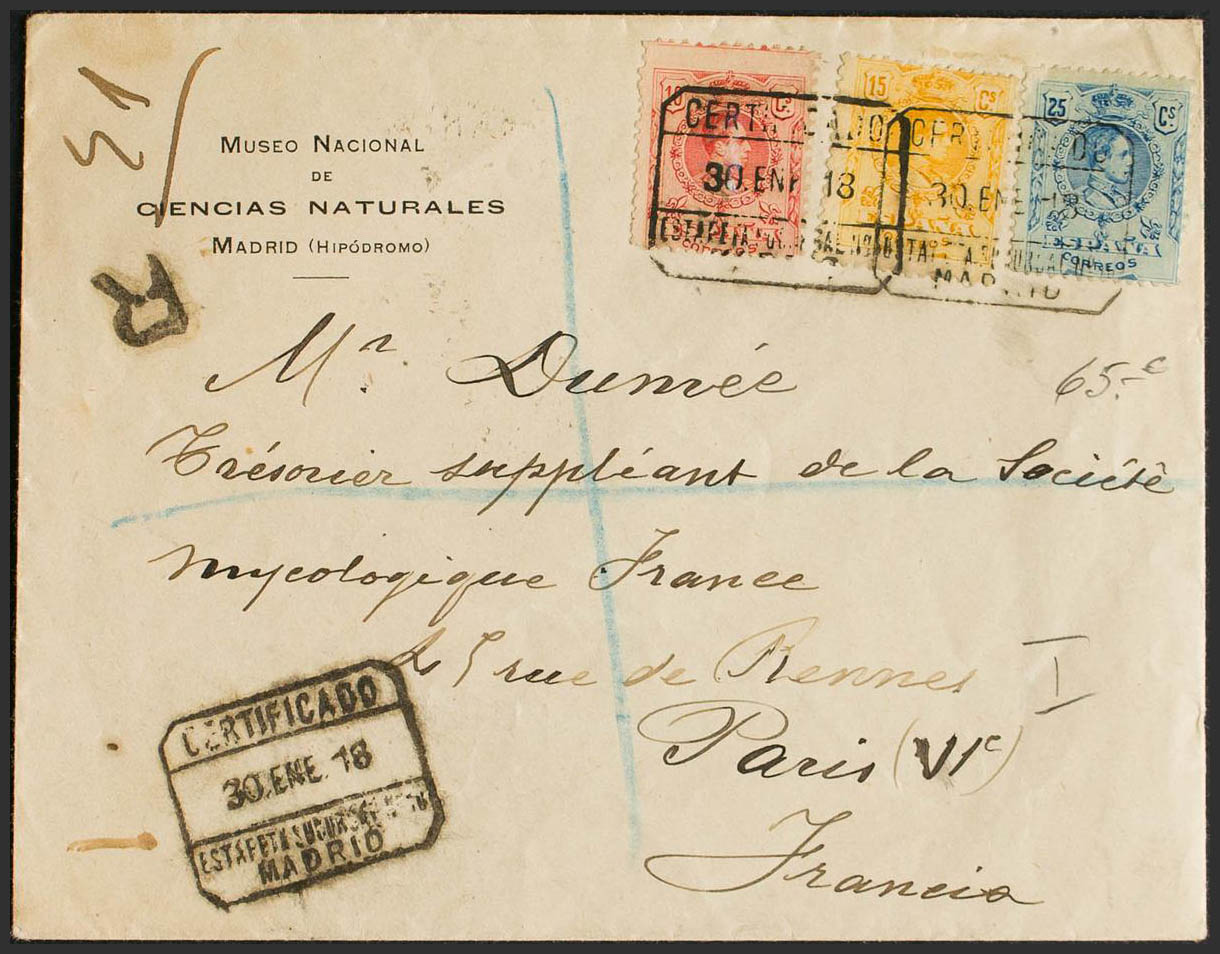 21
MUSEO NACIONAL
DE
CIENCIAS NATURALES
MADRID (HIPÓDROMO)
R
10 Cs
CORREOS
15 Cs
25 Cs
CORREOS
CERTIFICADO
30.ENE 18
ESTAFETA SUCURSAL
CERTIFICADO
30.ENE 18
ESTAFETA SUCURSAL
MADRID
Mr. Dumée
65 c
Trésorier suppléant de la Société
mycologique France
45 rue de Rennes
I
Paris (VIe)
Francia
CERTIFICADO
30.ENE.18
ESTAFETA SUCURSAL
MADRID